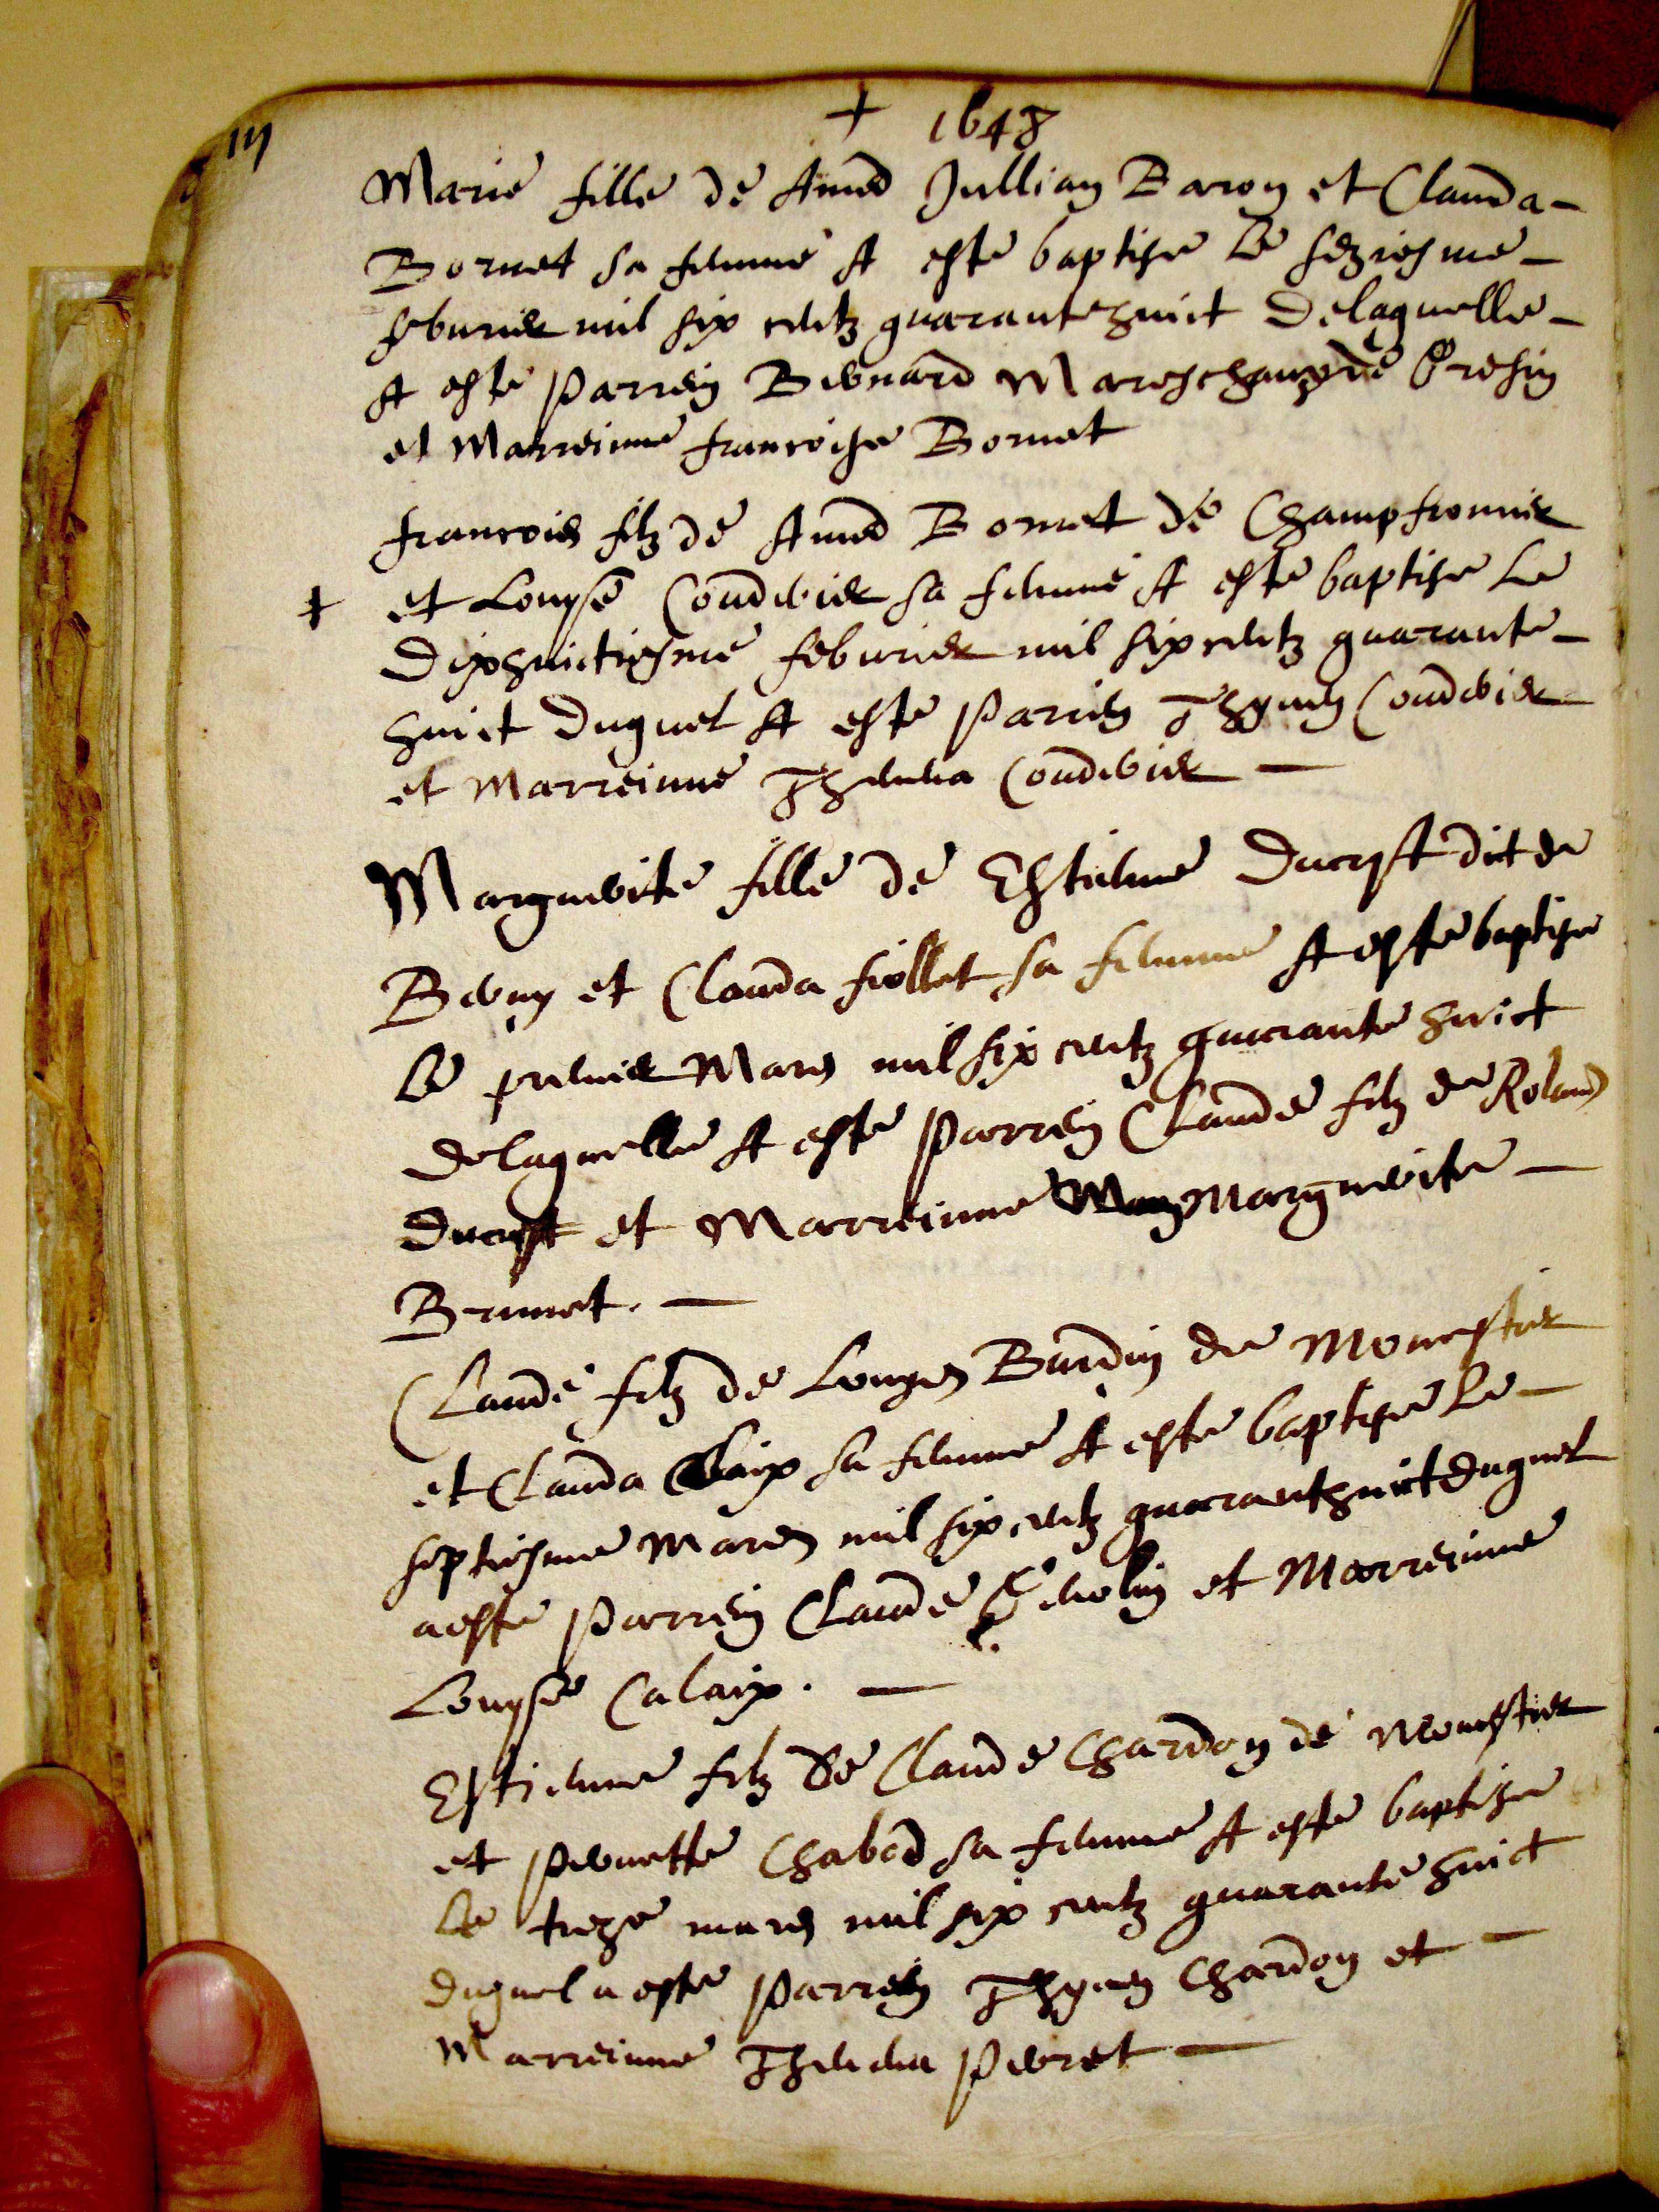 + 1648
Marie fille de Amed Jullian Baron et Clauda
Bornet sa femme A esté baptisé le seziesme
feburier mil six centz quarantehuict delaquelle
A esté parrein Bernard Mareschaux de Cresin
et Marreinne françoise Bornet
françois filz de Amed Bornet de Champfromier
+ et Louyse Coudurier sa femme A esté baptisé le
dixhuictiesme feburier mil six centz quarante
huict duquel A esté parrein Thyven Coudurier
et Marreinne Thevena Coudurier
Marguerite fille de Estienne Ducrest dict de
Berny et Clauda fiollet sa femme A esté baptisé
le premier Mars mil six centz quarante huict
delaquelle A esté parrein Claude filz de Roland
ducrest et Marreinne Marguerite
Brunet.
Claude filz de Louys Bardin de Monestier
et Clauda sa femme A esté baptisé le
septiesme Mars mil six centz quarantehuict duquel
a esté parrein Claude et Marreinne
Louyse Calaix.
Estienne filz de Claude Chardon de Monestier
et pernette Chabod sa femme A esté baptisé
le treze mars mil six centz quarante huict
duquel a esté parrein Thyven Chardon et
Marreinne Thevena perret